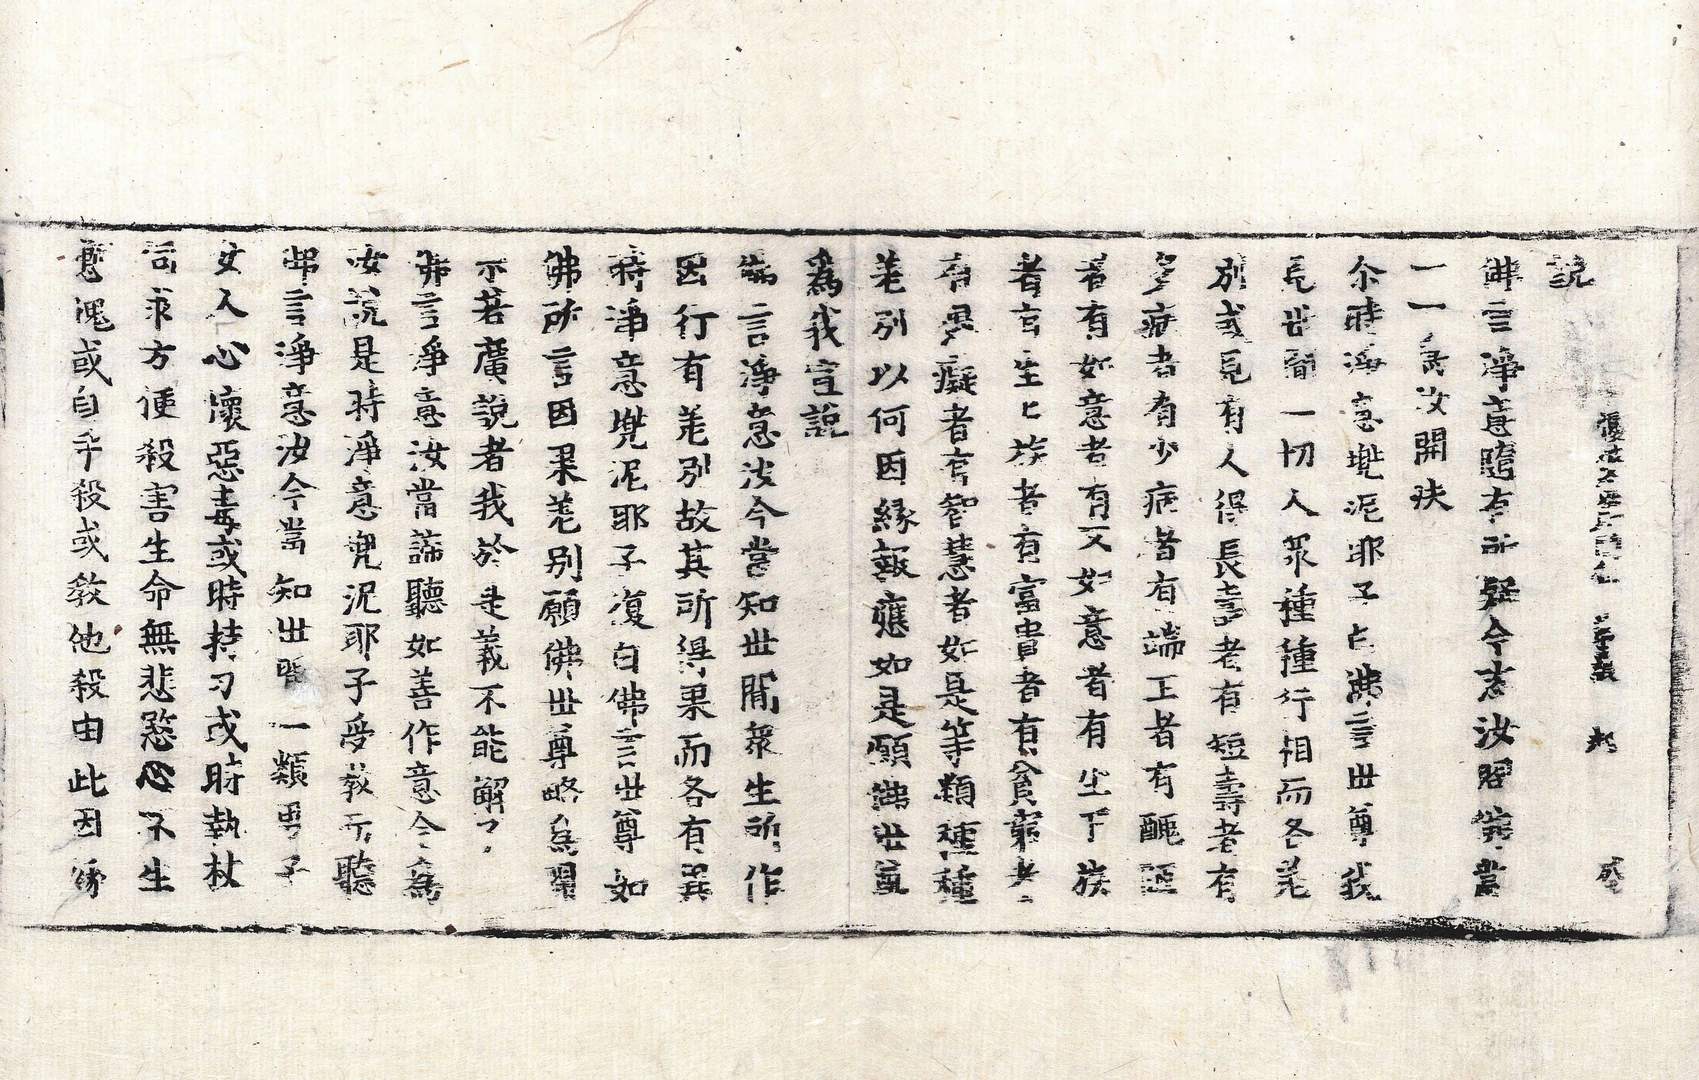 說
佛言淨意隨有所疑今恣汝問當
一一為汝開決
尒時淨意兠泥耶子白佛言世尊我
見世間一切人衆種種行相而各差
別或見有人得長壽者有短壽者有
多病者有少病者有端正者有醜惡
者有如意者有不如意者有生下族
者有生上族者有富貴者有貧窮者
有愚癡者有智慧者如是等類種種
差別以何因緣報應如是願佛世尊
為我宣說
佛言淨意汝今當知世間衆生所作
因行有差別故其所得果而各有異
時淨意兠泥耶子復白佛言世尊如
佛所言因果差别願佛世尊略為開
示若廣說者我於是義不能解了
佛言淨意汝當諦聽如善作意今為
汝說是時淨意兠泥耶子受教而聽
佛言淨意汝今當知世間一類男子
女人心懷惡毒或時持刀或時執杖
同求方便殺害生命無悲愍心不生
慙愧或自手殺或教他殺由此因緣